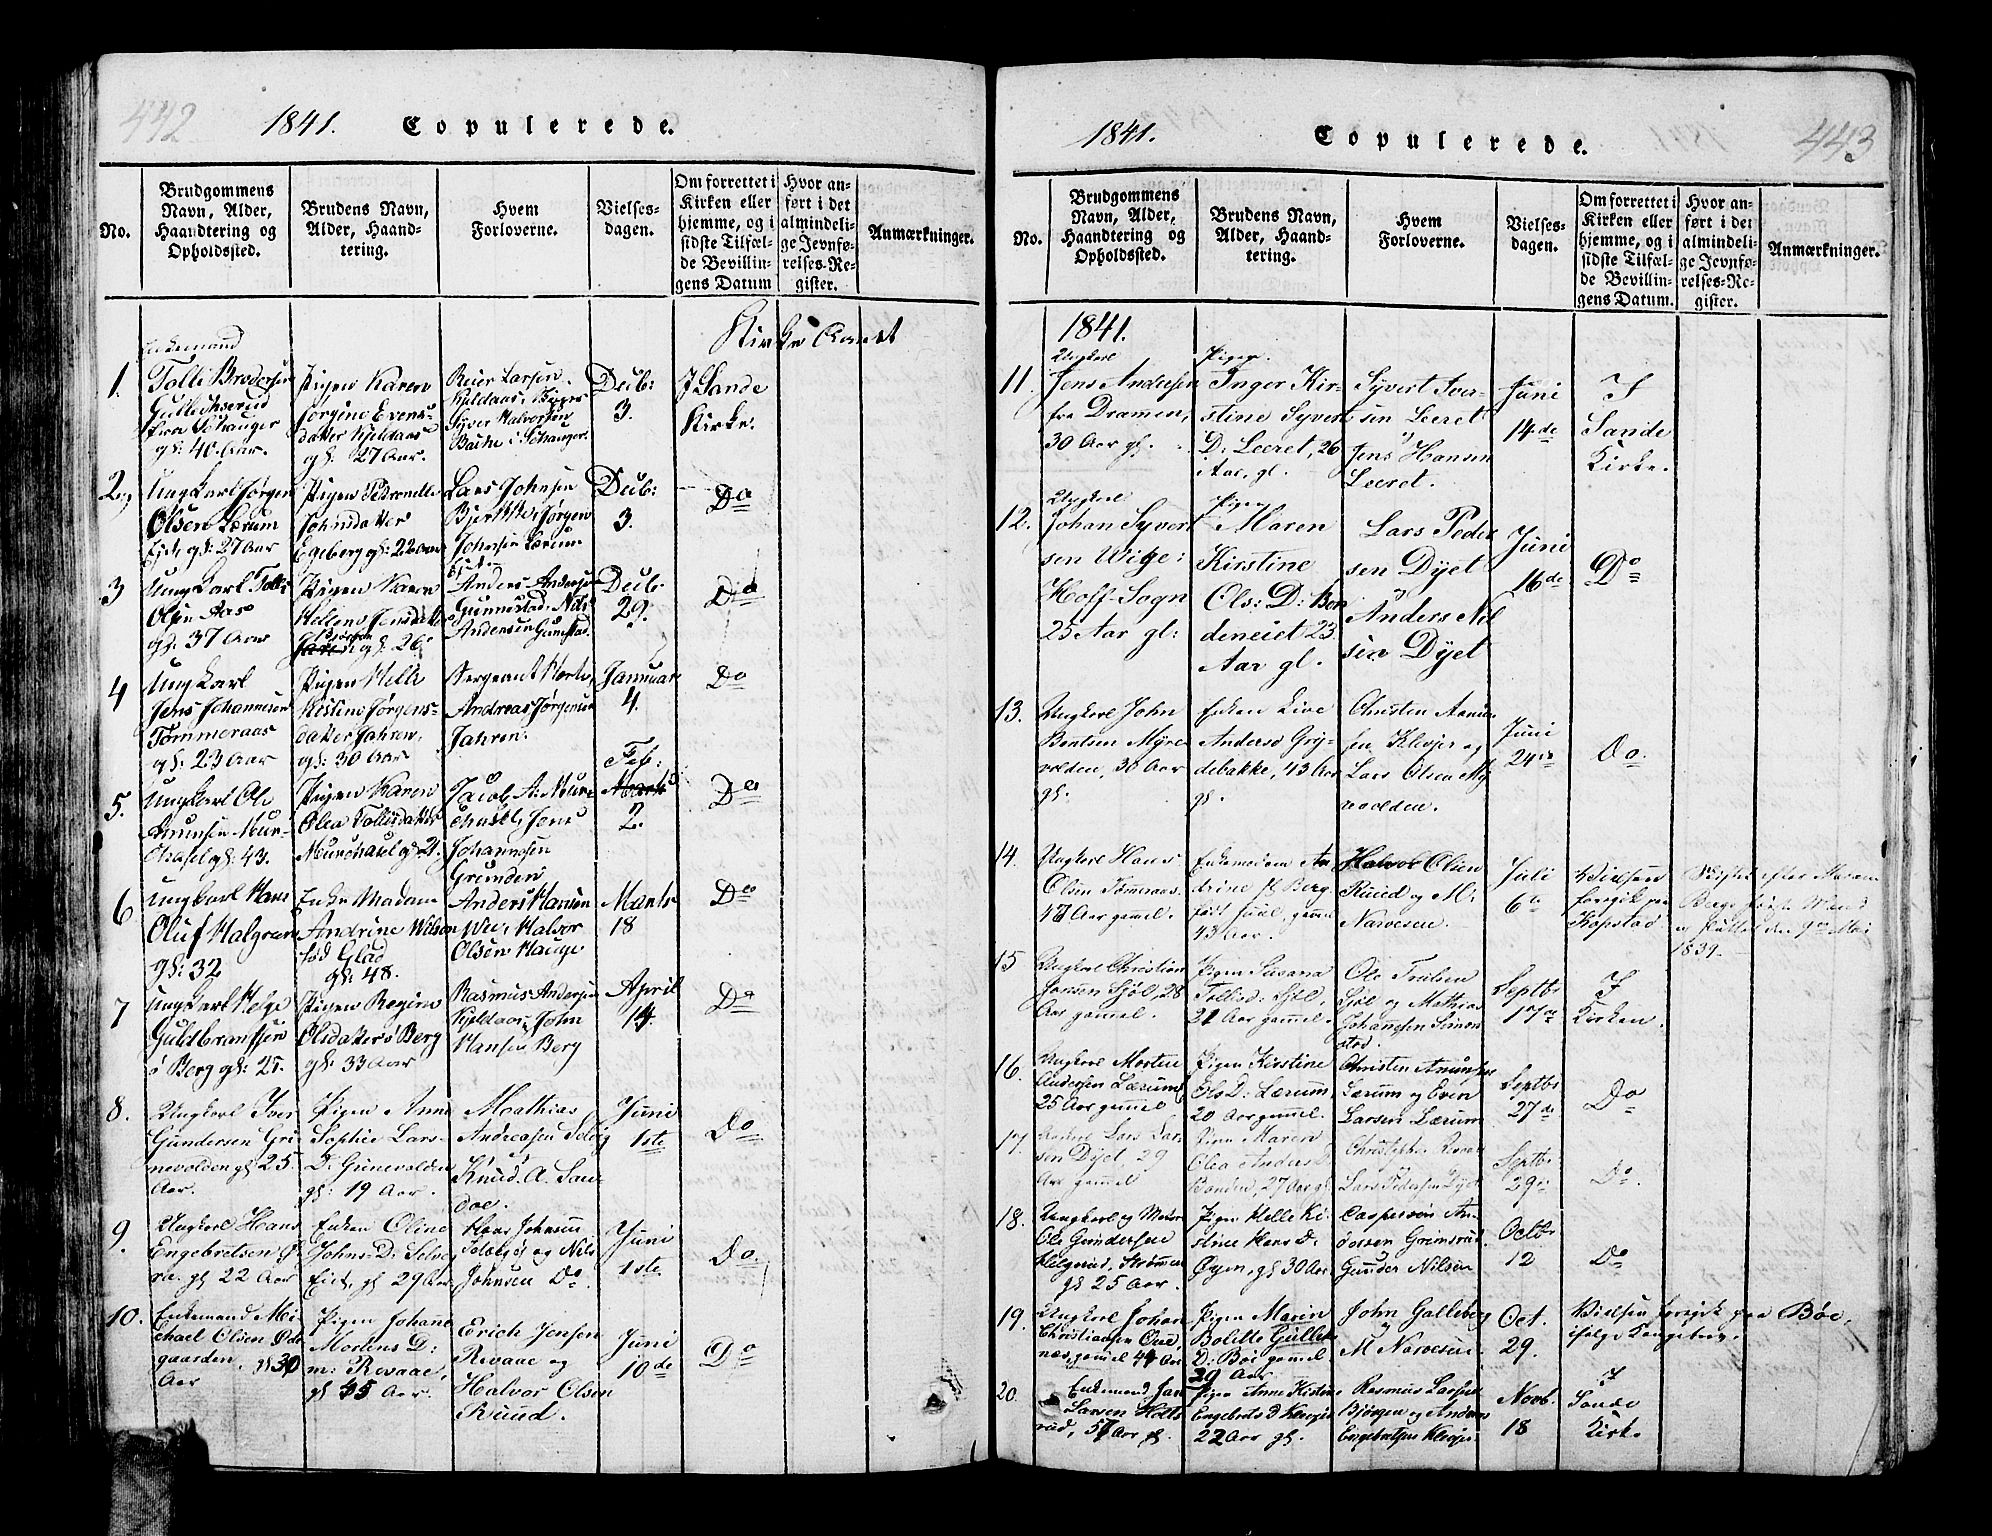 442
1841. Copulerede.
No.
Brudgommens Navn, Alder, Haandtering og Opholdssted.
Brudens Navn, Alder, Haandtering.
Hvem Forloverne.
Vielsesdagen.
Om forrettet i Kirken eller hjemme, og i sidste Tilfælde Bevillingens Datum
Hvor anført i det almindelige Jevnførelses-Register.
Anmærkninger.
1.
Enkemand
Tolli Brodersen
fra Schauger
gl: 40 Aar.
Pigen Karen
Jørgine Evens-
datter Kjeldaas
gl: 27 Aar.
Reier Larsen
Kjeldaas,
Syver Halvorsen
Bache i Schauger.
Decb:
3.
I Sande
Kirke.
2.
Ungkarl Jørgen
Olsen Lærum
Eje, gl: 27 Aar
Pigen Petronelle
Johnsdatter
Egeberg gl: 22 Aar
Lars Johnsen
Jørgen
Johnsen Lærum
Decb:
3.
Do
3
Ungkarl Tolli
Olsen Aas
gl: 37 Aar
Pigen Karen
Hellene Jensdatter
gl: 26
Anders Andersen
Gunnestad, Nils
Andersen Gunnestad.
Decb:
29.
Do
4
Ungkarl
Jens Johannesen
Tømmeraas
gl: 23 Aar
Pigen Helle
Kistine Jørgens-
datter Jahren,
gl: 30 Aar
Sergeant Horte,
Andreas Jørgensen
Jahren.
Januar
4.
Do
5.
Ungkarl Ole
gl: 43.
Pigen Karen
Olea Tollisdatter
gl: 21.
Jacob A:
Johannesen
Grunden
Feb:
2.
Do
6
Ungkarl Hans
Oluf Halgren
gl: 32
Enke Madam
Andrine Wilson
fød Glad
gl: 48.
Anders Hansen
Wii, Halvor
Olsen Hauge
Marts
18
Do
7
Ungkarl Helge
Guldbrandsen
ø Berg gl: 25.
Pigen Regine
Olsdatter ø Berg
gl: 33 Aar
Rasmus Andersen
Kjeldaas, John
Hansen Berg
April
14.
Do
8.
Ungkarl Iver
Gundersen Gri-
nevolden gl 25
Aar.
Pigen Anne
Sophie Lars-
D: Grinevolden
gl: 19 Aar.
Mathias
Andreasen Selvig
Knud A. San-
doe.
Juni
1ste
Do
9.
Ungkarl Hans
Engebretsen Ø-
ra. gl 22 Aar
Enken Oline
Johns-D: Selvig
Eiet, gl 29 Aar
Hans Johnsen
og Nils
Johnsen Do.
Juni
1ste
Do.
10.
Enkemand Mi-
chael Olsen
gaarden, gl 30
Aar
Pigen Johanne
Mortens D:
m: Revaae,
gl 55 Aar.
Erich Jensen
Revaae og
Halvor Olsen
Ruud.
Juni
10de
Do
443
1841. Copulerede.
No.
Brudgommens Navn, Alder, Haandtering og Opholdssted.
Brudens Navn, Alder, Haandtering.
Hvem Forloverne.
Vielsesdagen.
Om forrettet i Kirken eller hjemme, og i sidste Tilfælde Bevillingens Datum.
Hvor anført i det almindelige Jevnførelses-Register.
Anmærkninger.
1841.
11.
Ungkarl
Jens Andersen
fra Dramen,
30 Aar gl.
Pigen
Inger Kir-
stine Syvert
D: Leeret, 26
Aar, gl.
Syvert Iver-
sen Leeret
Jens Hansen
Leeret.
Juni
14de
I
Sande
Kirke.
12.
Ungkarl
Johan Syvert
sen Wige:
Hoff-Sogn
25 Aar gl:
Pigen
Maren
Kirstine
Ols: D: Bon
deneiet 23
Aar gl.
Lars Peder
sen Dyet
Anders Nil
sen Dyet
Juni
16de
Do
13.
Ungkarl John
Bentsen Myre
volden, 30 Aar
gl.
Enken Live
Anders Gry-
debakke, 43 Aar
gl.
Christen
sen Klever og
Lars Olsen My
revolden.
Juni
24de
Do.
14.
Ungkarl Hans
Olsen Tømeraas.
47 Aar gamel.
Enkemadam An
drine fl Berg
født Juul, gamel
43 Aar.
Halvor Olsen
Ruud og M:
Narvesen.
Juli
6te
Vielsen
foregik paa
Kopstad
Skiftet efter Madam
Bergs første Mand
1839.
15
Ungkarl Christian
Hansen Sjøl, 28
Aar gamel.
Pigen Susana
Tollisd: Sjøl.
21 Aar gamel.
Ole Trulsen
Sjøl og Mathias
Johannsen Simon
stad.
Septbr
17de
I
Kirken.
16.
Ungkarl Morten
Andersen Lærum
25 Aar gamel
Pigen Kirstine
Ols D: Lærum
20 Aar gamel.
Christen
Lærum og Even
Larsen Lærum
Septbr
27de
Do
17.
Lars Lar
sen Dyet, 29
Aar gamel
Pigen Maren
Olea Anders D
Bonden, 27 Aar gl.
Christopher
Lars Pedersen Dyet
Septbr
29de
Do.
18.
Ungkarl og
Ole Gundersen
Strømmen
gl 25 Aar.
Pigen Helle Ki-
stine Hans D:
Øyen, gl 30 Aar
Caspersen
Grimsrud
Gunder Nilsen
Octbr
12
Do
19.
Ungkarl Johan
Christiansen
næs, gamel 44 Aar
Pigen Maren
Bolette Gullek
D: Bøe gamel
29 Aar
John Galleberg
M Narvesen
Oct.
29.
Vielsen foregik paa Bøe,
ifølge Kongebrev.
20.
Enkemand
Larsen Holts
rud, 57 Aar gl.
Pigen Anne Kistine
Engebrets D
22 Aar gl.
Rasmus Larsen
Bjørgen og Anders
Engebretsen
Novb.
18
I
Sande
Kirke